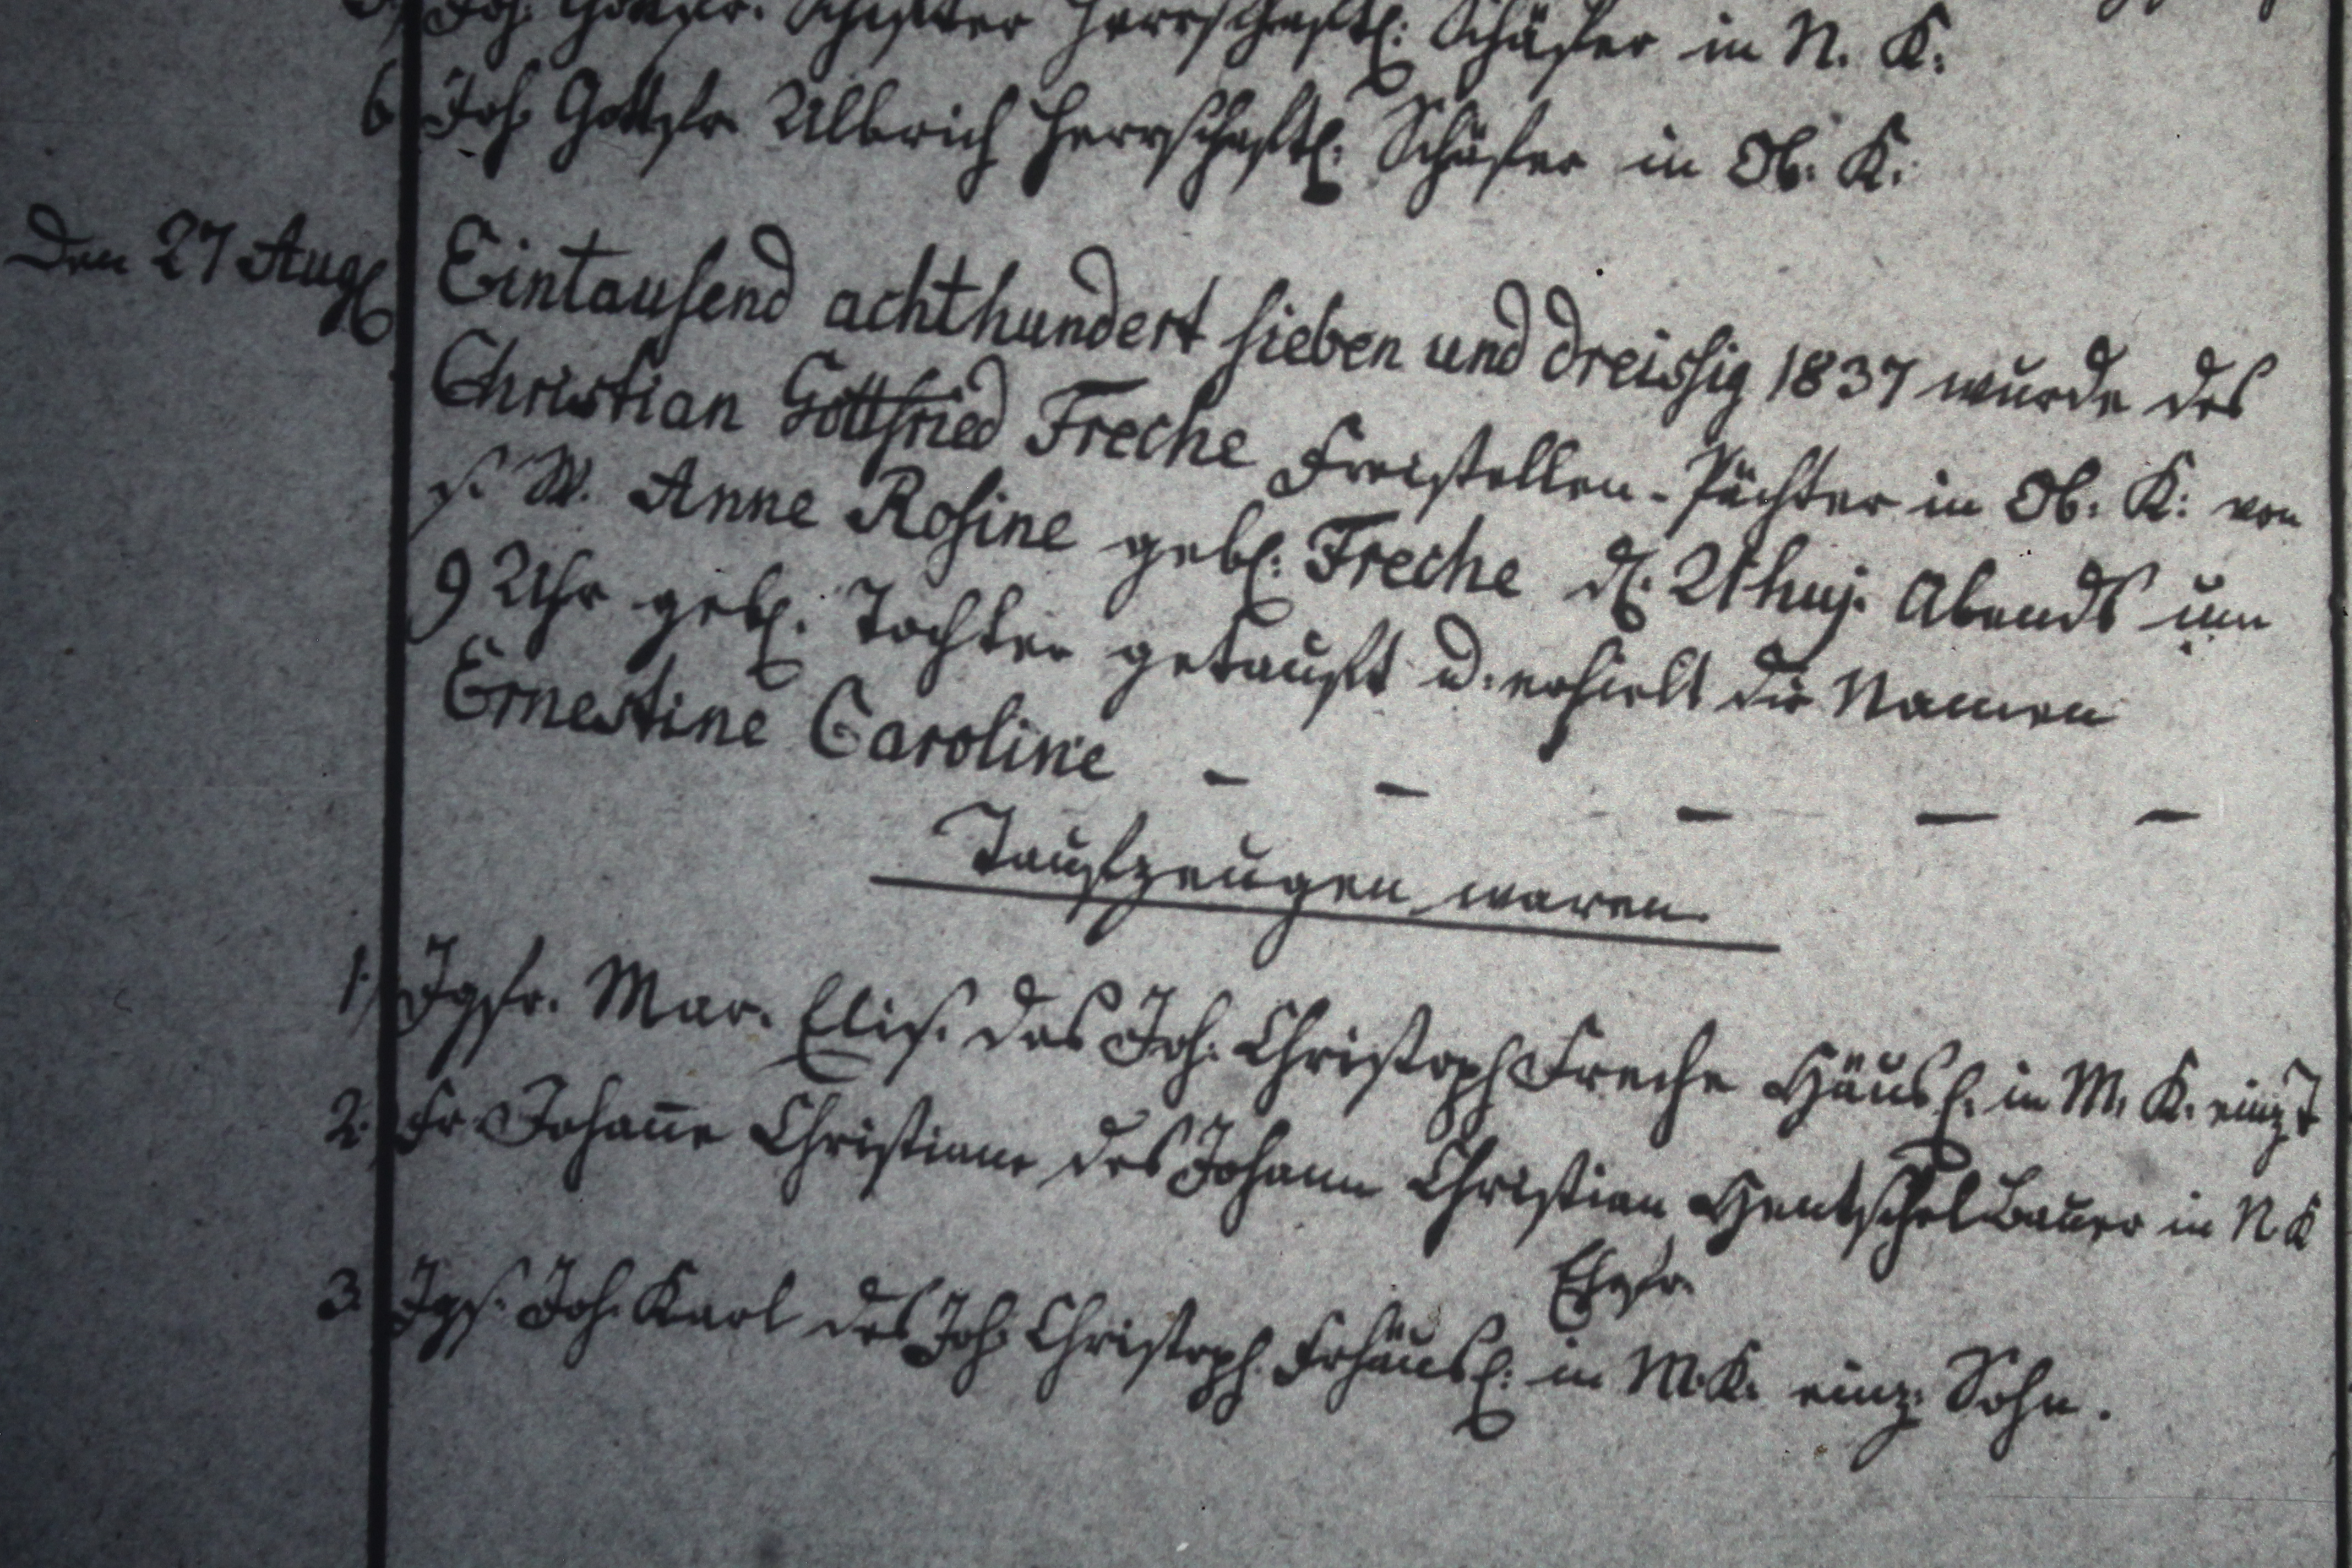 Joh. Gottfr. herrschaftl: Schäfer in N. K:
6 Joh. Gottfr. Ulbrich herrschaftl: Schäfer in Ob: K:
Den 27 Aug Eintausend achthundert sieben und dreissig 1837 wurde des
Christian Gottfried Freche Freistellen-Pächter in Ob: K: von
s. W. Anne Rosine gebl: Freche d. 21 huj. Abends um
9 Uhr gebl: Tochter getauft u. erhielt die Namen
Ernestine Caroline - - - - -
Taufzeugen waren.
1) Jgfr. Mar. Elis. des Joh. Christoph Freche Häusl. in M. K. einz T
2. Fr Johan̅e Christiane des Johann Christian Hentschel Bauer in N. K
Ehefr.
3. Jgs. Joh. Karl des Joh. Christoph Frhäusl: in M. K. einz. Sohn.